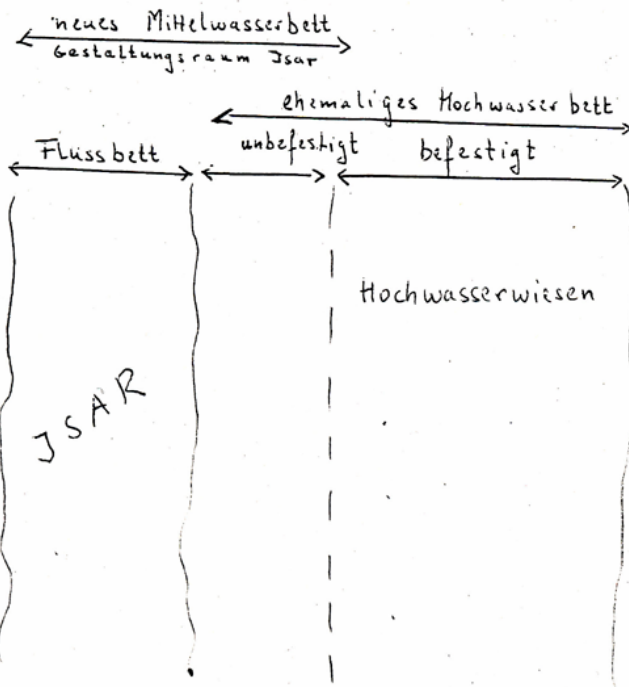 neues Mittelwasserbett
Gestaltungsraum Isar
ehemaliges Hochwasserbett
Flussbett
unbefestigt
befestigt
Hochwasserwiesen
ISAR